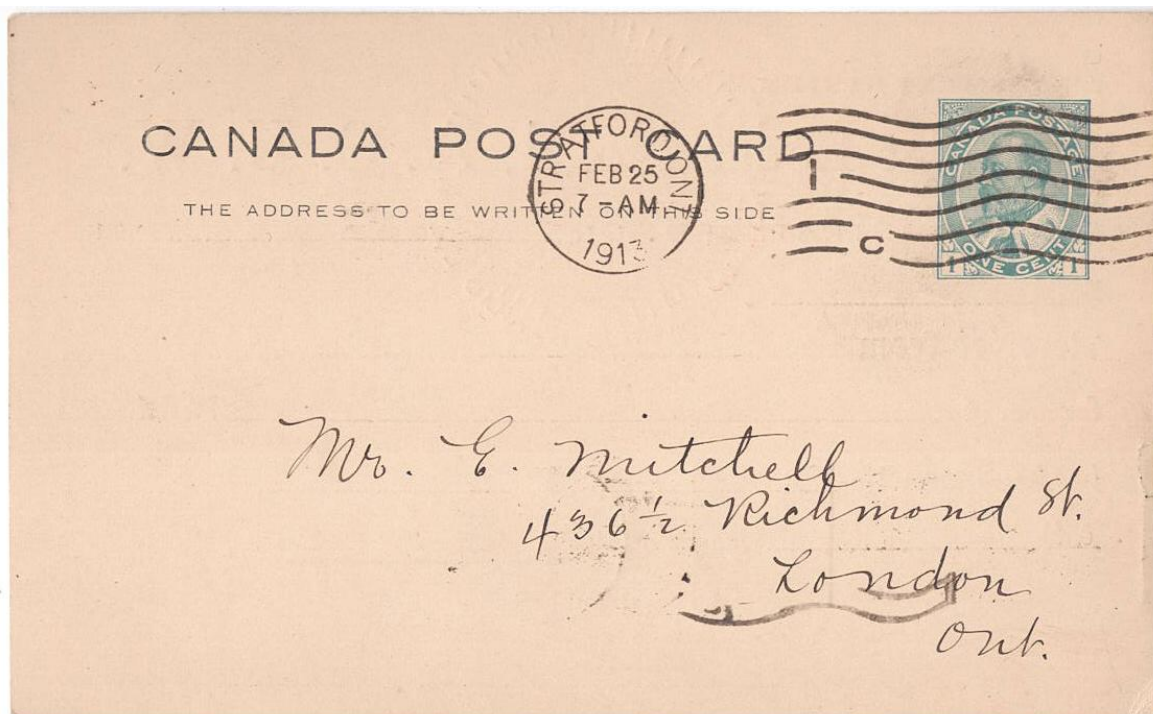 CANADA POST CARD
THE ADDRESS TO BE WRITTEN ON THIS SIDE
STRATFORD ONT
FEB 25
7-AM
1913
I
C
CANADA POSTAGE
ONE CENT
1 1
Mr. E. Mitchell
436½ Richmond St.
London
Ont.